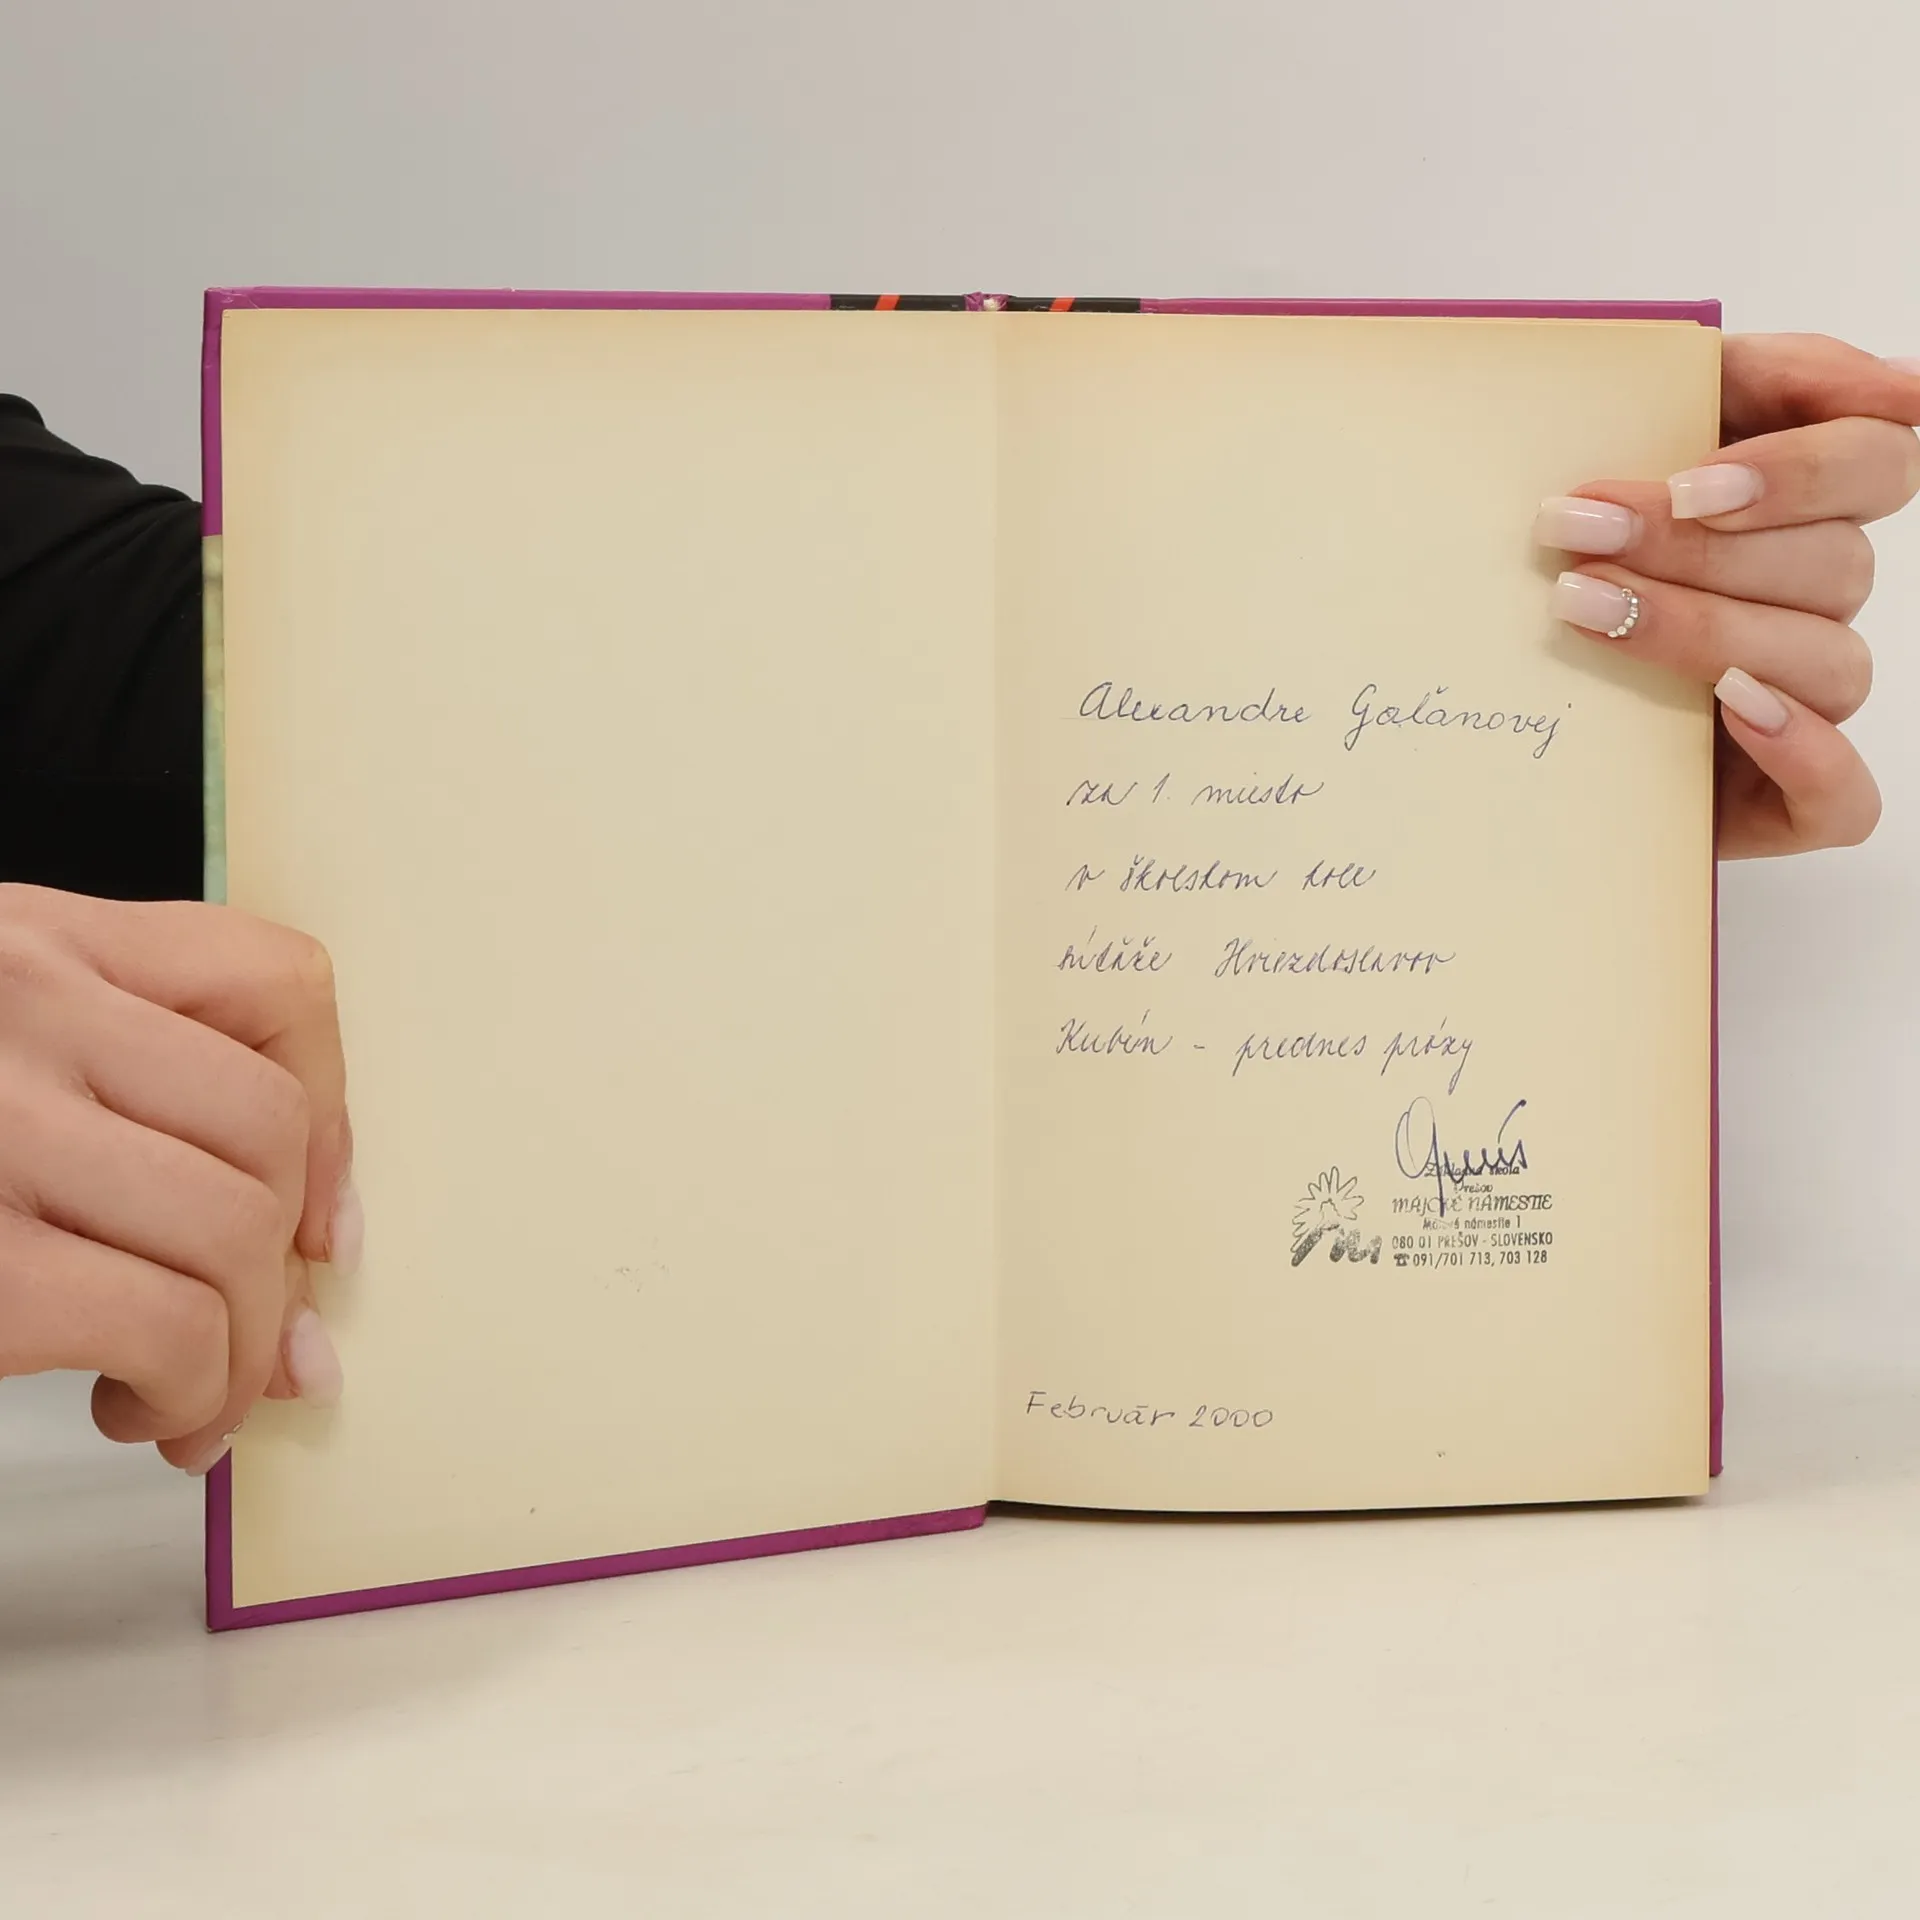 Alexandre Galánovej
za 1. miesto
v školskom kole
súťaže Hviezdoslavov
Kubín - prednes prózy
Základná škola
Prešov
MÁJOVÉ NÁMESTIE
Májové námestie 1
080 01 PREŠOV - SLOVENSKO
☎ 091/701 713, 703 128
Február 2000